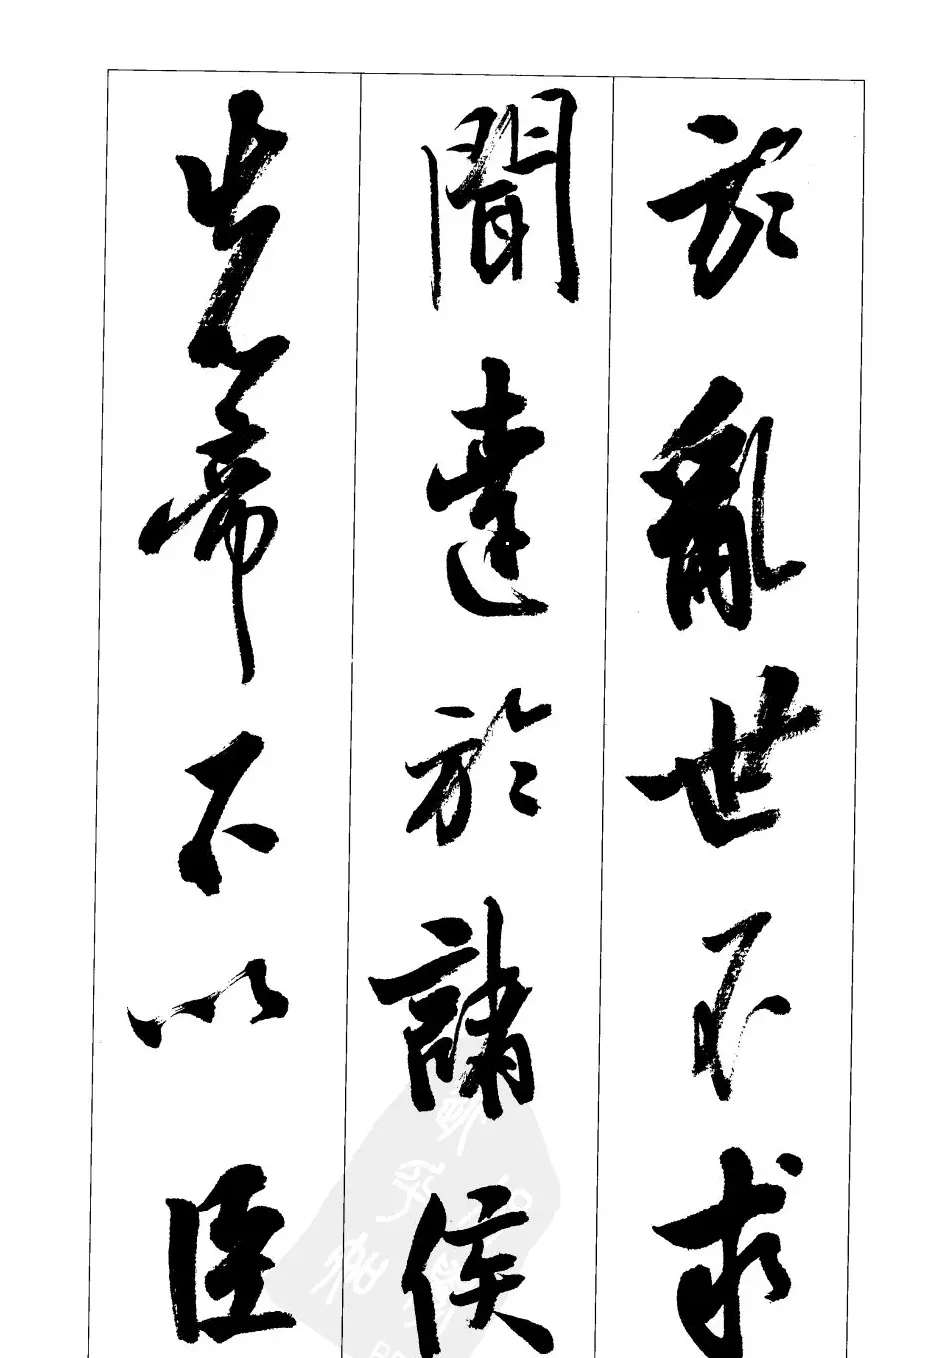 於亂世不求
聞達於諸侯
先帝不以臣